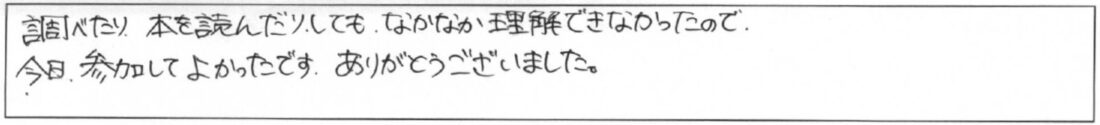 調べたり、本を読んだりしても、なかなか理解できなかったので、
今日、参加してよかったです。ありがとうございました。